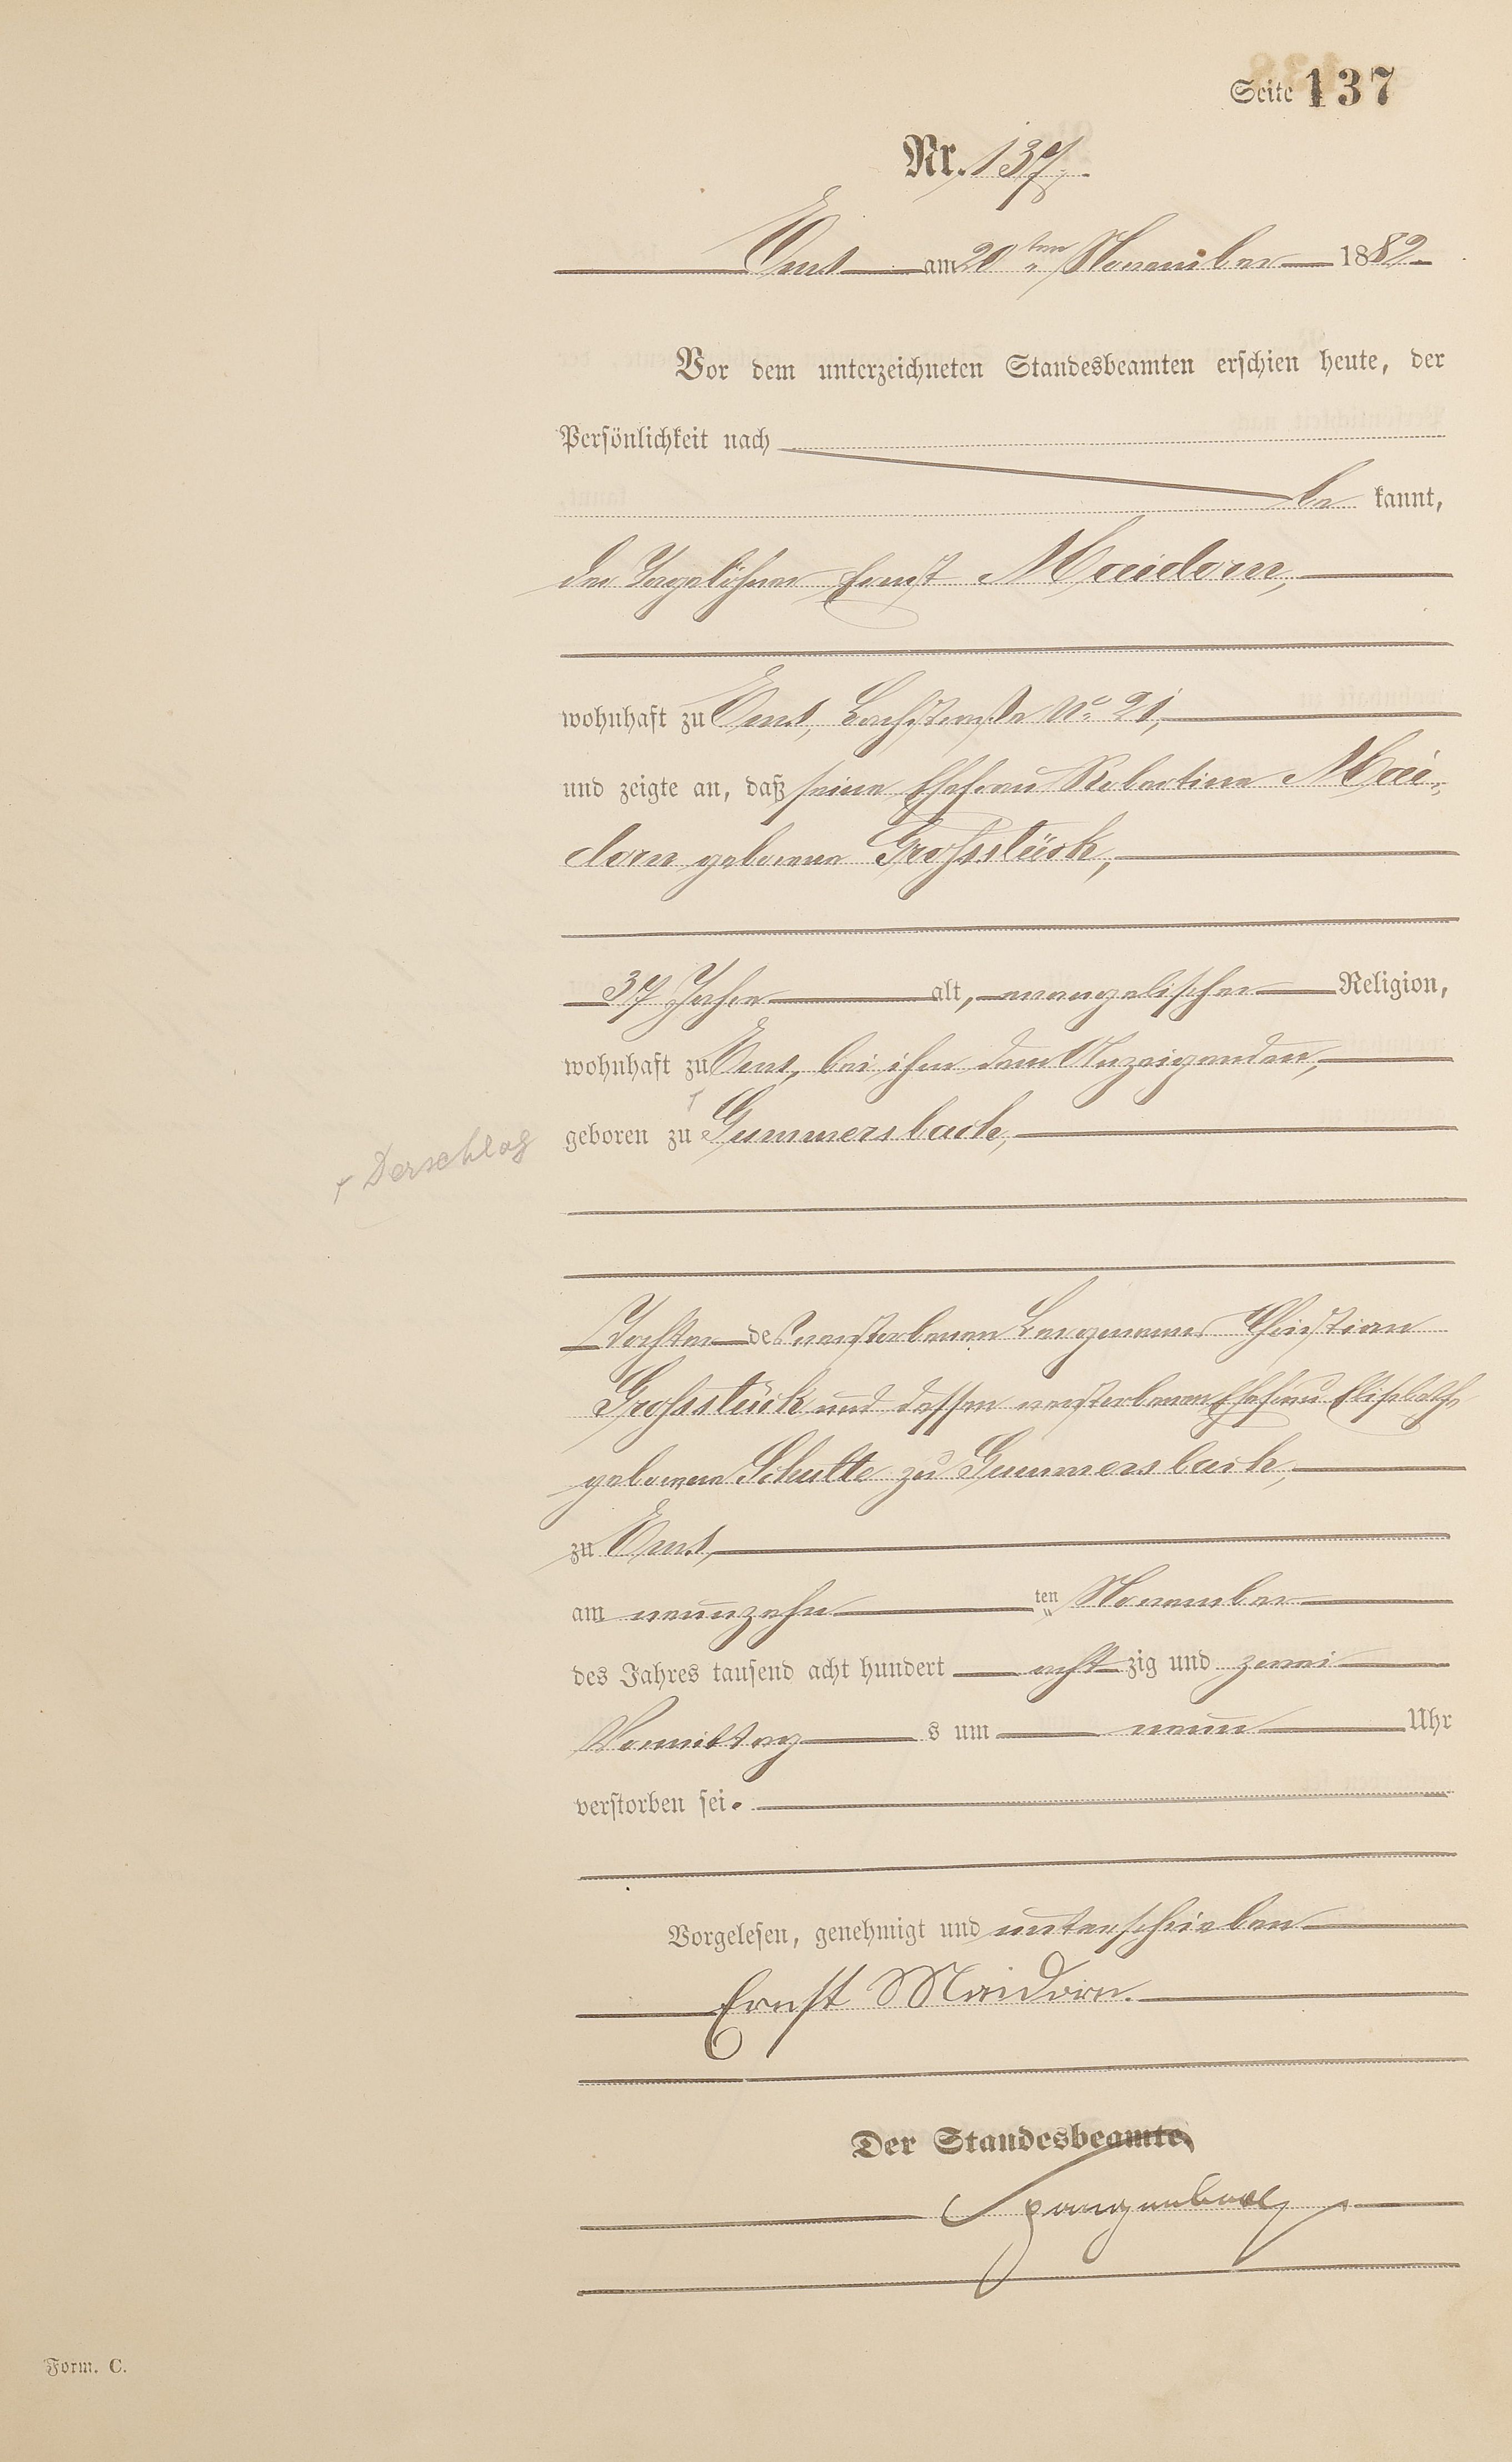 Seite 137
Nr. 137.
Ems am 20ten November 1882
Vor dem unterzeichneten Standesbeamten erschien heute, der
Persönlichkeit nach
be kannt,
der Tagelöhner Ernst Maidorn,
wohnhaft zu Ems, Bachstraße No 21,
und zeigte an, daß seine Ehefrau Robertina Mai-
dorn geborene Grossstück,
37 Jahre alt, evangelischer Religion,
wohnhaft zu Ems, bei ihm dem Anzeigenden,
geboren zu Gummersbach,
+ Derschlag
Tochter des verstorbenen Bergmanns Christian
Grossstück und dessen verstorbenen Ehefrau Elisabeth
geborene Schulte zu Gummersbach,
zu Ems,
am neunzehn ten November
des Jahres tausend acht hundert acht zig und zwei
Vormittag s um neun Uhr
verstorben sei.
Vorgelesen, genehmigt und unterschrieben
Ernst Maidorn.
Der Standesbeamte
Form. C.